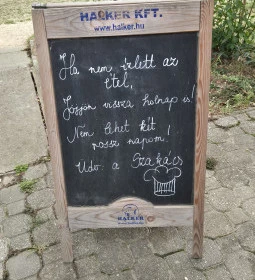 HALKER KFT.
www.halker.hu
Ha nem ízlett az
étel,
Jöjjön vissza holnap is!
Nem lehet két
rossz napom!
Üdv: a Szakács
HALKER